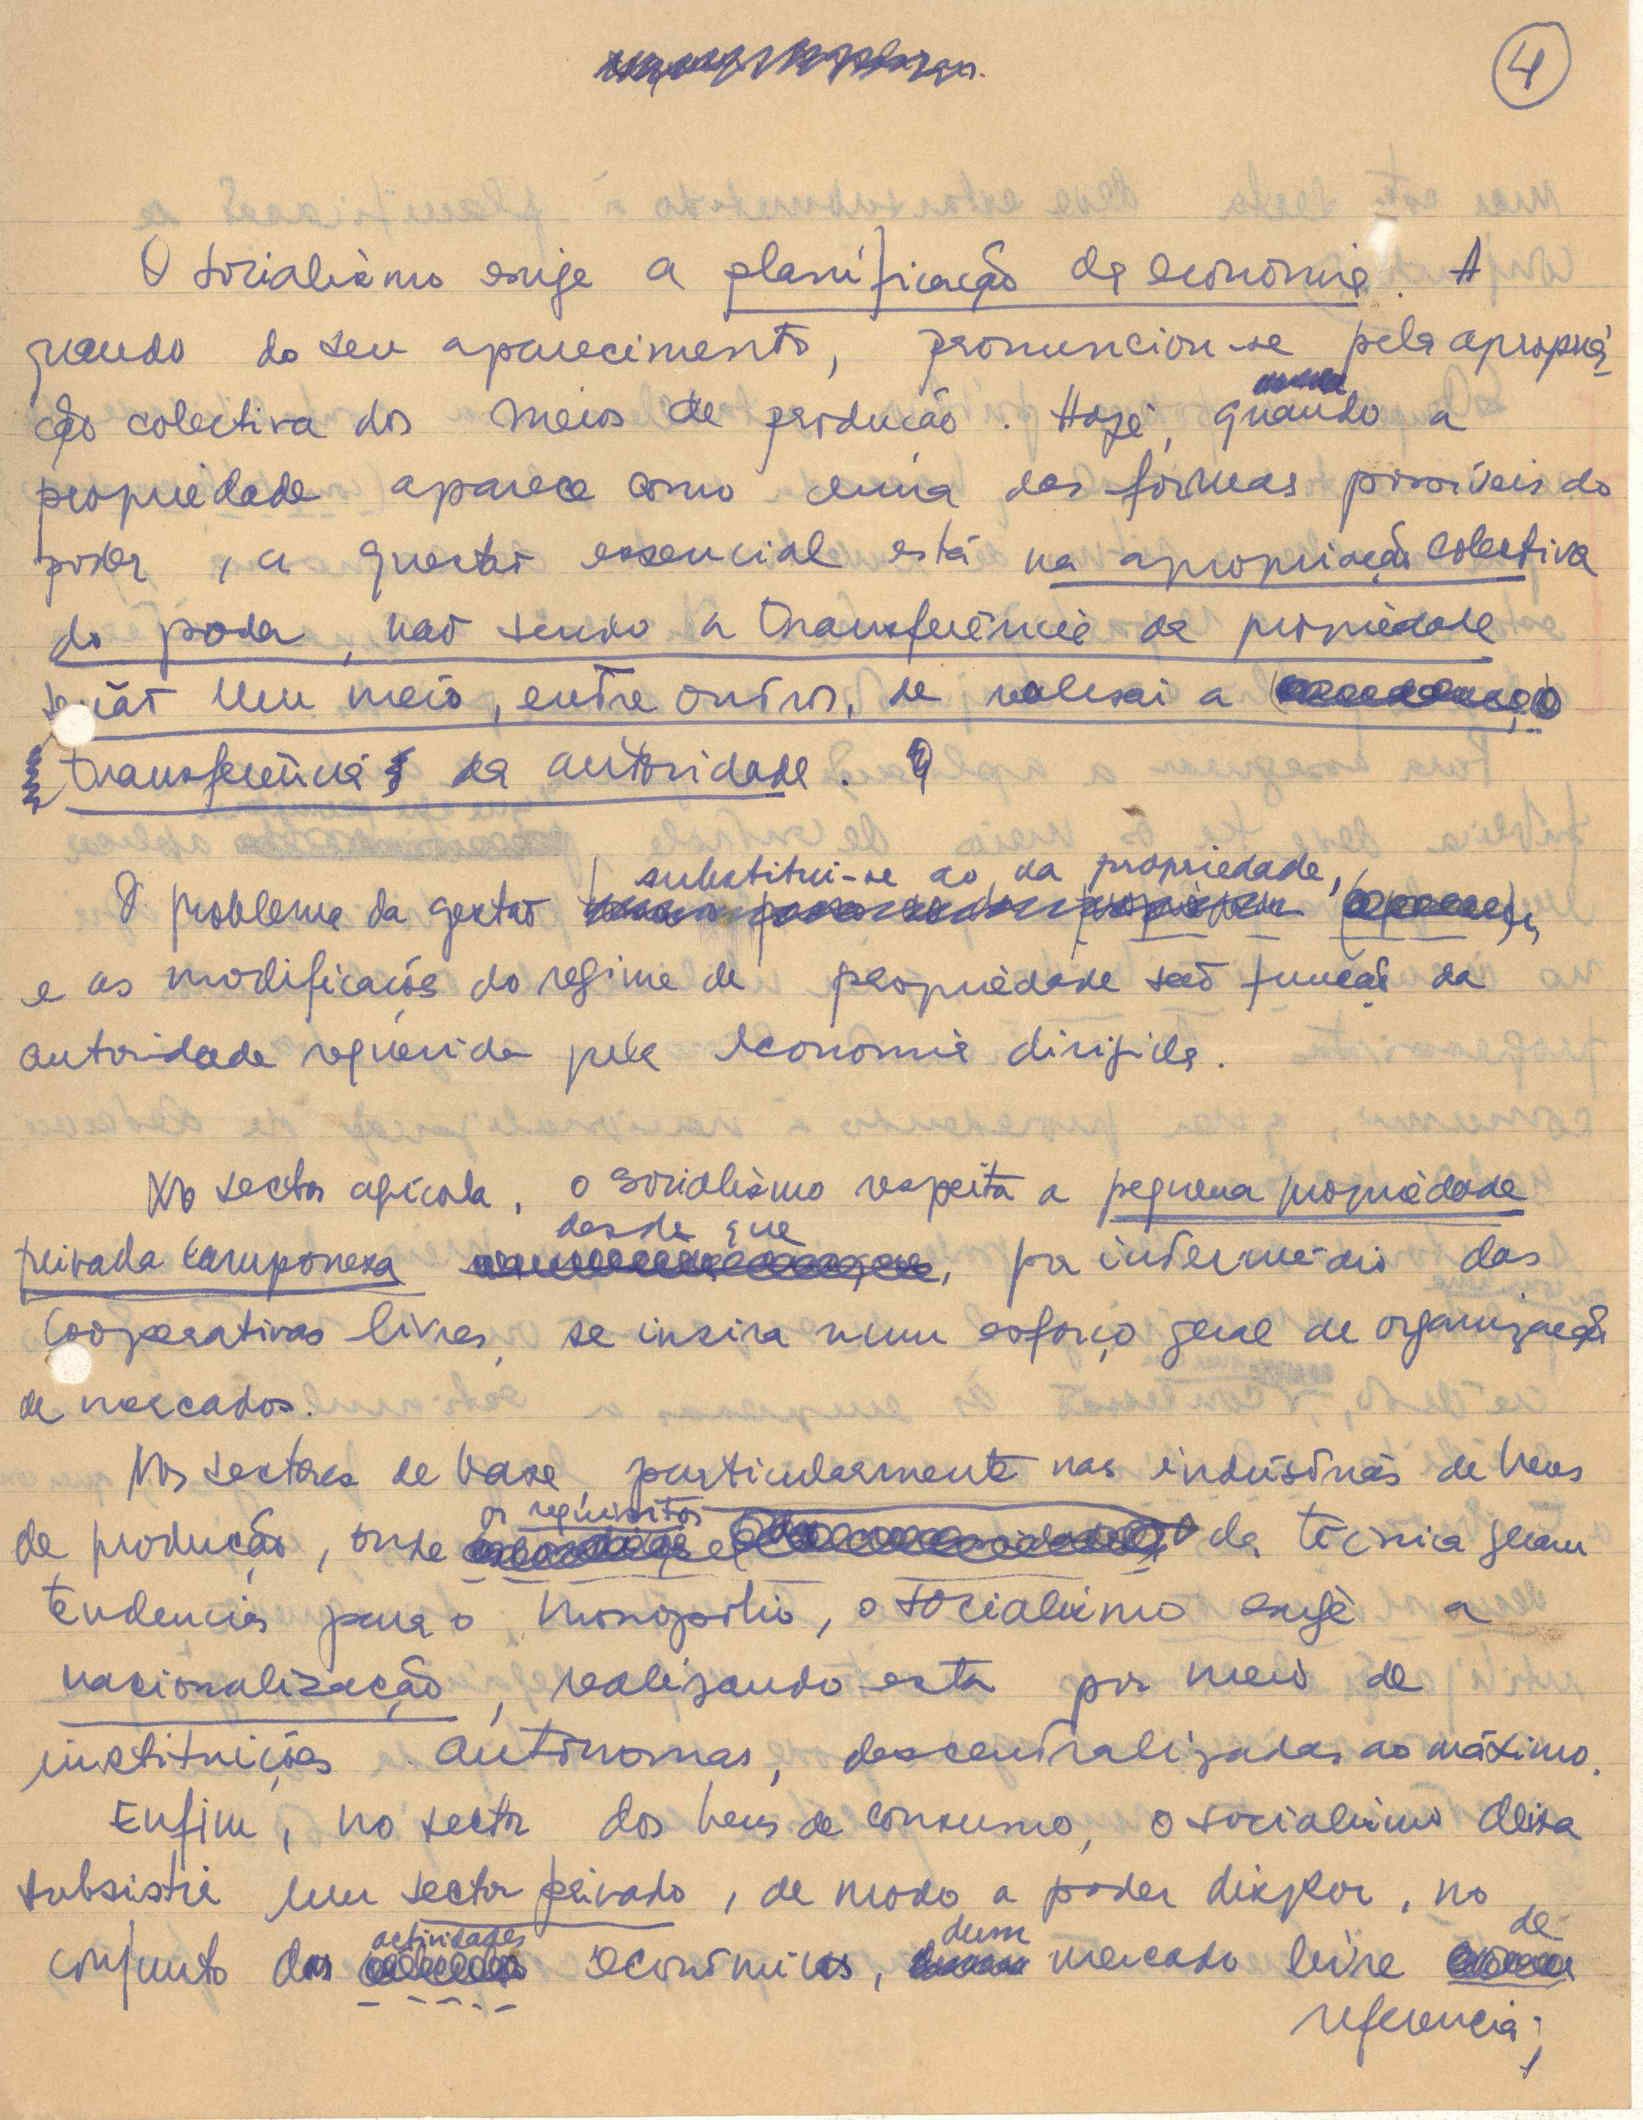 4
O socialismo exige a planificação da economia. A
quando do seu aparecimento, pronunciou-se pela apropria-
ção colectiva dos meios de produção. Hoje, quando a
propriedade aparece como uma das formas possíveis do
poder, a questão essencial está na apropriação colectiva
do poder, não sendo a transferência da propriedade
senão um meio, entre outros, de realizar a
transferência da autoridade.
substitui-se ao da propriedade,
O problema da gestão
e as modificações do regime de propriedade são função da
autoridade requerida pela economia dirigida.
No sector agrícola, o socialismo respeita a pequena propriedade
desde que
privada camponesa, por intermédio das
cooperativas livres, se insira num esforço geral de organização
de mercados.
Nos sectores de base, particularmente nas indústrias de bens
os requisitos
de produção, onde da técnica geram
tendencias para o monopólio, o socialismo exige a
nacionalização, realizando esta por meio de
instituições autónomas, descentralizadas ao máximo.
Enfim, no sector dos bens de consumo, o socialismo deixa
subsistir um sector privado, de modo a poder dispor, no
actividades dum de
conjunto das económicas, mercado livre
referencia;